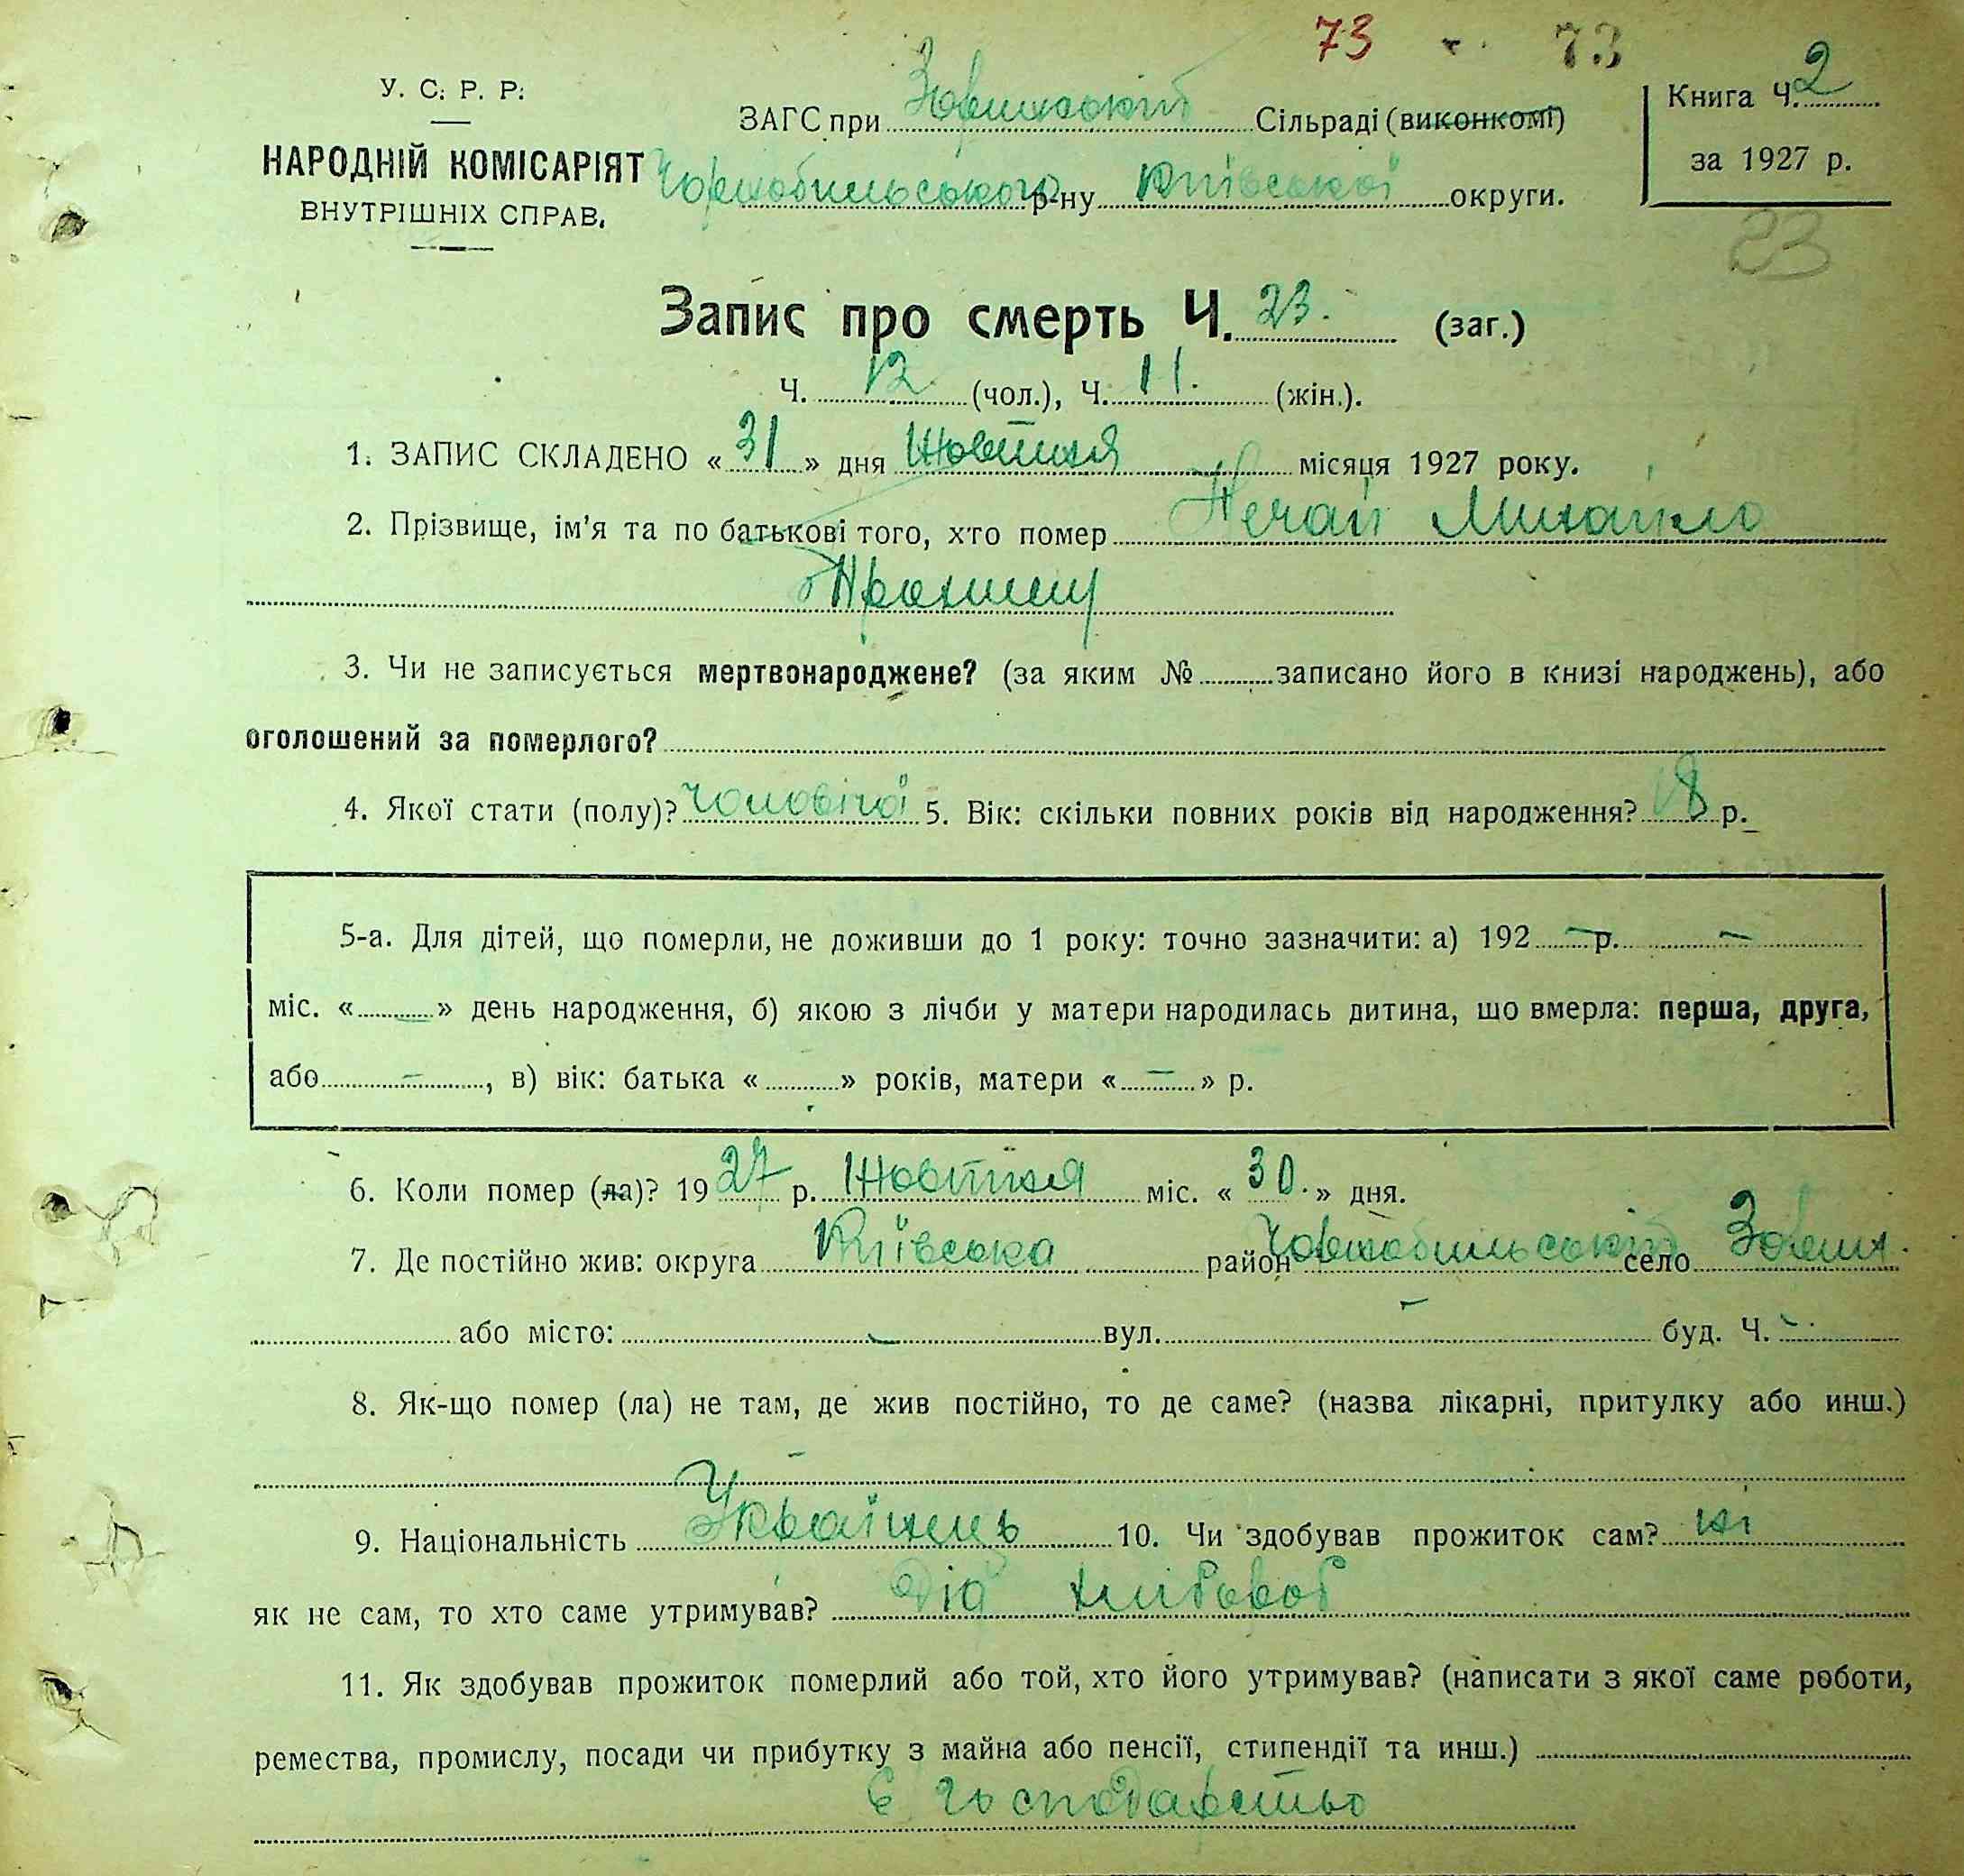 73 73
У. С. Р. Р.
НАРОДНІЙ КОМІСАРІЯТ
ВНУТРІШНІХ СПРАВ.
ЗАГС при Зовинській Сільраді (виконкомі)
Чорнобильського р-ну Київської округи.
Книга Ч. 2
за 1927 р.
23
Запис про смерть Ч. 23. (заг.)
Ч. 12 (чол.), Ч. 11. (жін.).
1. ЗАПИС СКЛАДЕНО « 31 » дня Жовтня місяця 1927 року.
2. Прізвище, ім'я та по батькові того, хто помер Нечай Михайло
3. Чи не записується мертвонароджене? (за яким № записано його в книзі народжень), або
оголошений за померлого?
4. Якої стати (полу)? чоловічої 5. Вік: скільки повних років від народження? 18 р.
5-а. Для дітей, що померли, не доживши до 1 року: точно зазначити: а) 192 – р. –
міс. « – » день народження, б) якою з лічби у матери народилась дитина, що вмерла: перша, друга,
або – , в) вік: батька « » років, матери « – » р.
6. Коли помер (ла)? 1927 р. Жовтня міс. « 30. » дня.
7. Де постійно жив: округа Київська район Чорнобильський село
або місто: – вул. – буд. Ч. –
8. Як-що помер (ла) не там, де жив постійно, то де саме? (назва лікарні, притулку або инш.)
–
9. Національність Українець 10. Чи здобував прожиток сам? ні
як не сам, то хто саме утримував? Дід хлібороб
11. Як здобував прожиток померлий або той, хто його утримував? (написати з якої саме роботи,
ремества, промислу, посади чи прибутку з майна або пенсії, стипендії та инш.)
Є господарство